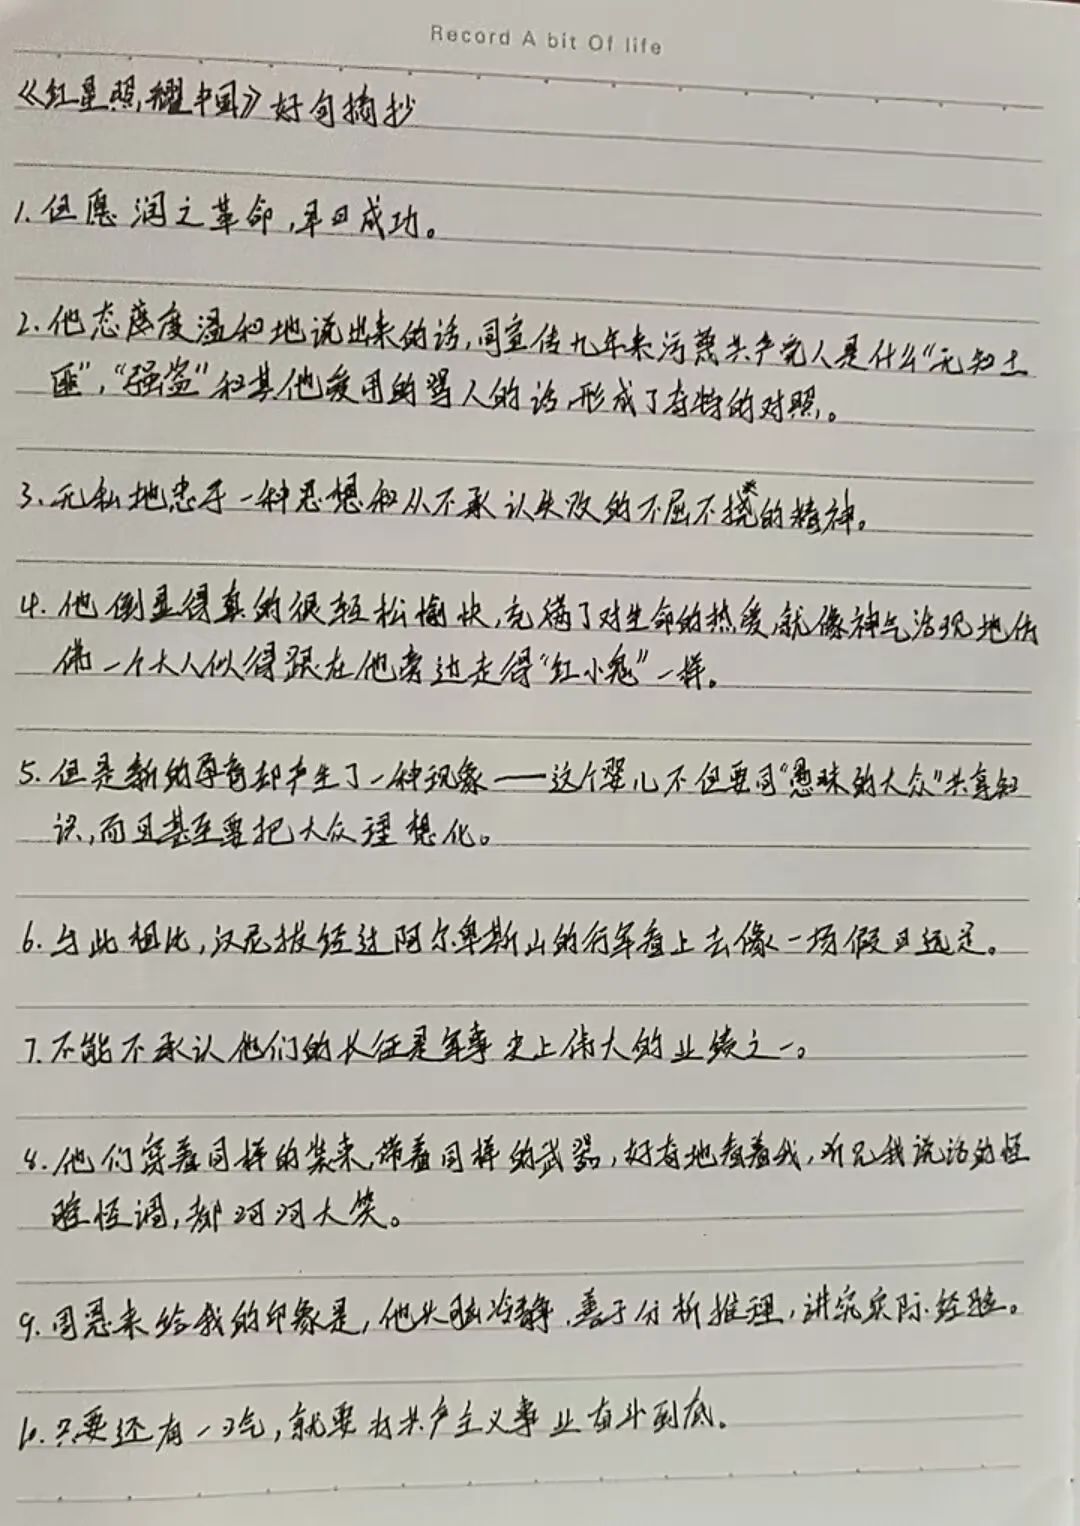 Record A bit Of life
《红星照耀中国》好句摘抄
1.但愿润之革命,早日成功。
2.他态度温和地说出来的话,同宣传九年来污蔑共产党人是什么“无知土
匪”,“强盗”和其他爱用的骂人的话,形成了奇特的对照。
3.无私地忠于一种思想和从不承认失败的不屈不挠的精神。
4.他倒显得真的很轻松愉快,充满了对生命的热爱,就像神气活现地仿
佛一个大人似得跟在他旁边走得“红小鬼”一样。
5.但是新的孕育却产生了一种现象——这个婴儿不但要同“愚昧的大众”共享知
识,而且甚至要把大众理想化。
6.与此相比,汉尼拔经过阿尔卑斯山的行军看上去像一场假日远足。
7.不能不承认他们的长征是军事史上伟大的业绩之一。
8.他们穿着同样的装束,带着同样的武器,好奇地看着我,听见我说话的怪
腔怪调,都呵呵大笑。
9.周恩来给我的印象是,他头脑冷静,善于分析推理,讲究实际经验。
10.只要还有一口气,就要为共产主义事业奋斗到底。